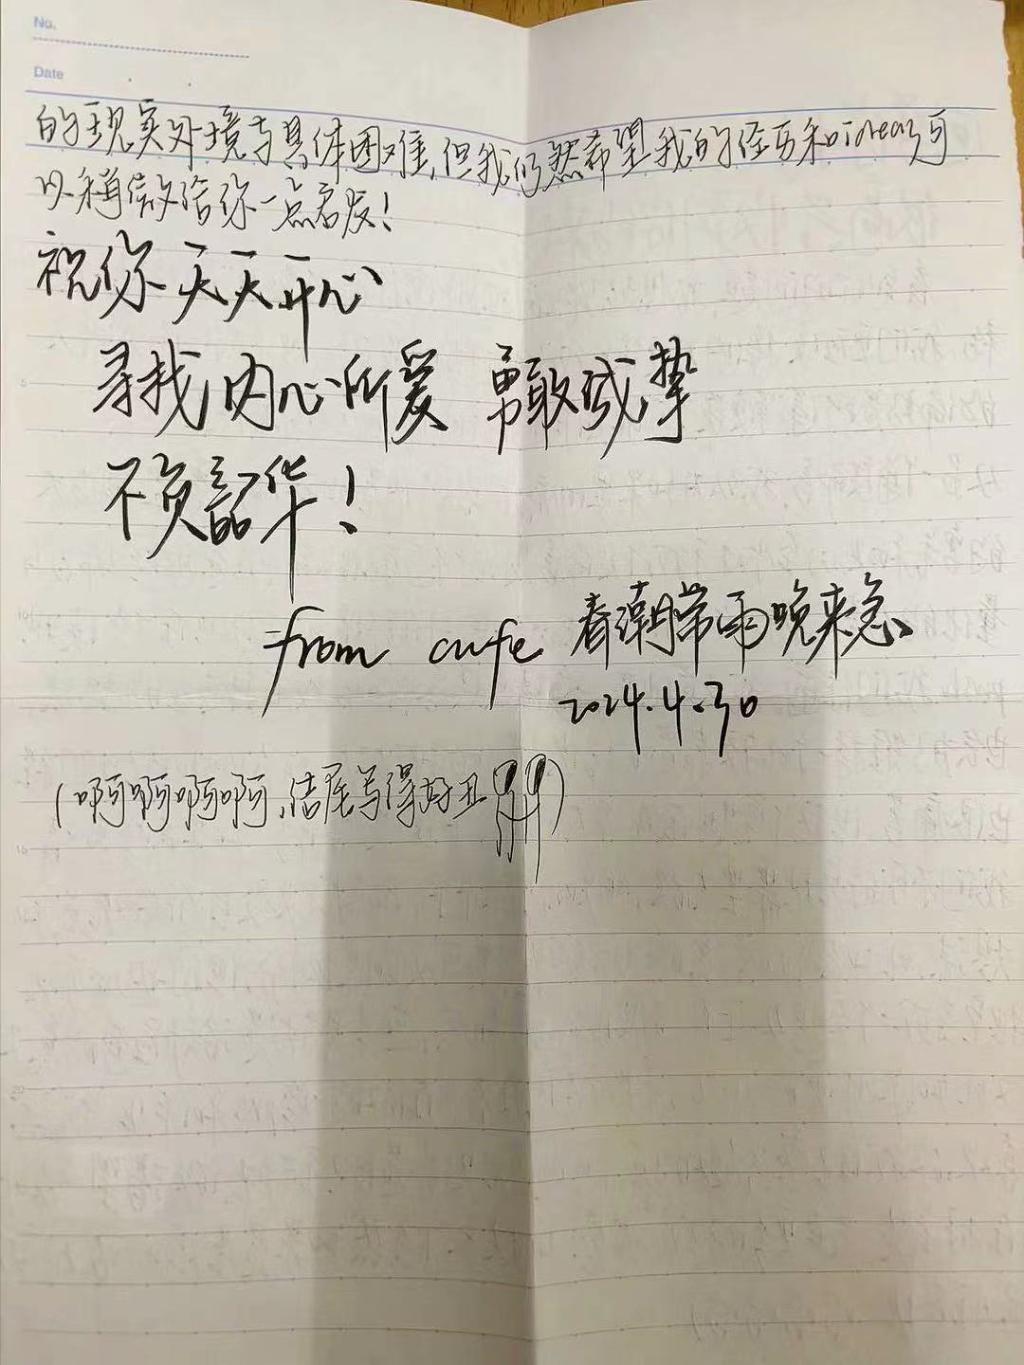 No.
Date
的现实外境与具体困难,但我仍然希望我的经历和ideas可
以稍微给你一点启发!
祝你天天开心
寻找内心所爱 勇敢诚挚
不负韶华!
from cufe 春潮常雨晚来急
2024.4.30
(啊啊啊啊,结尾写得好丑)